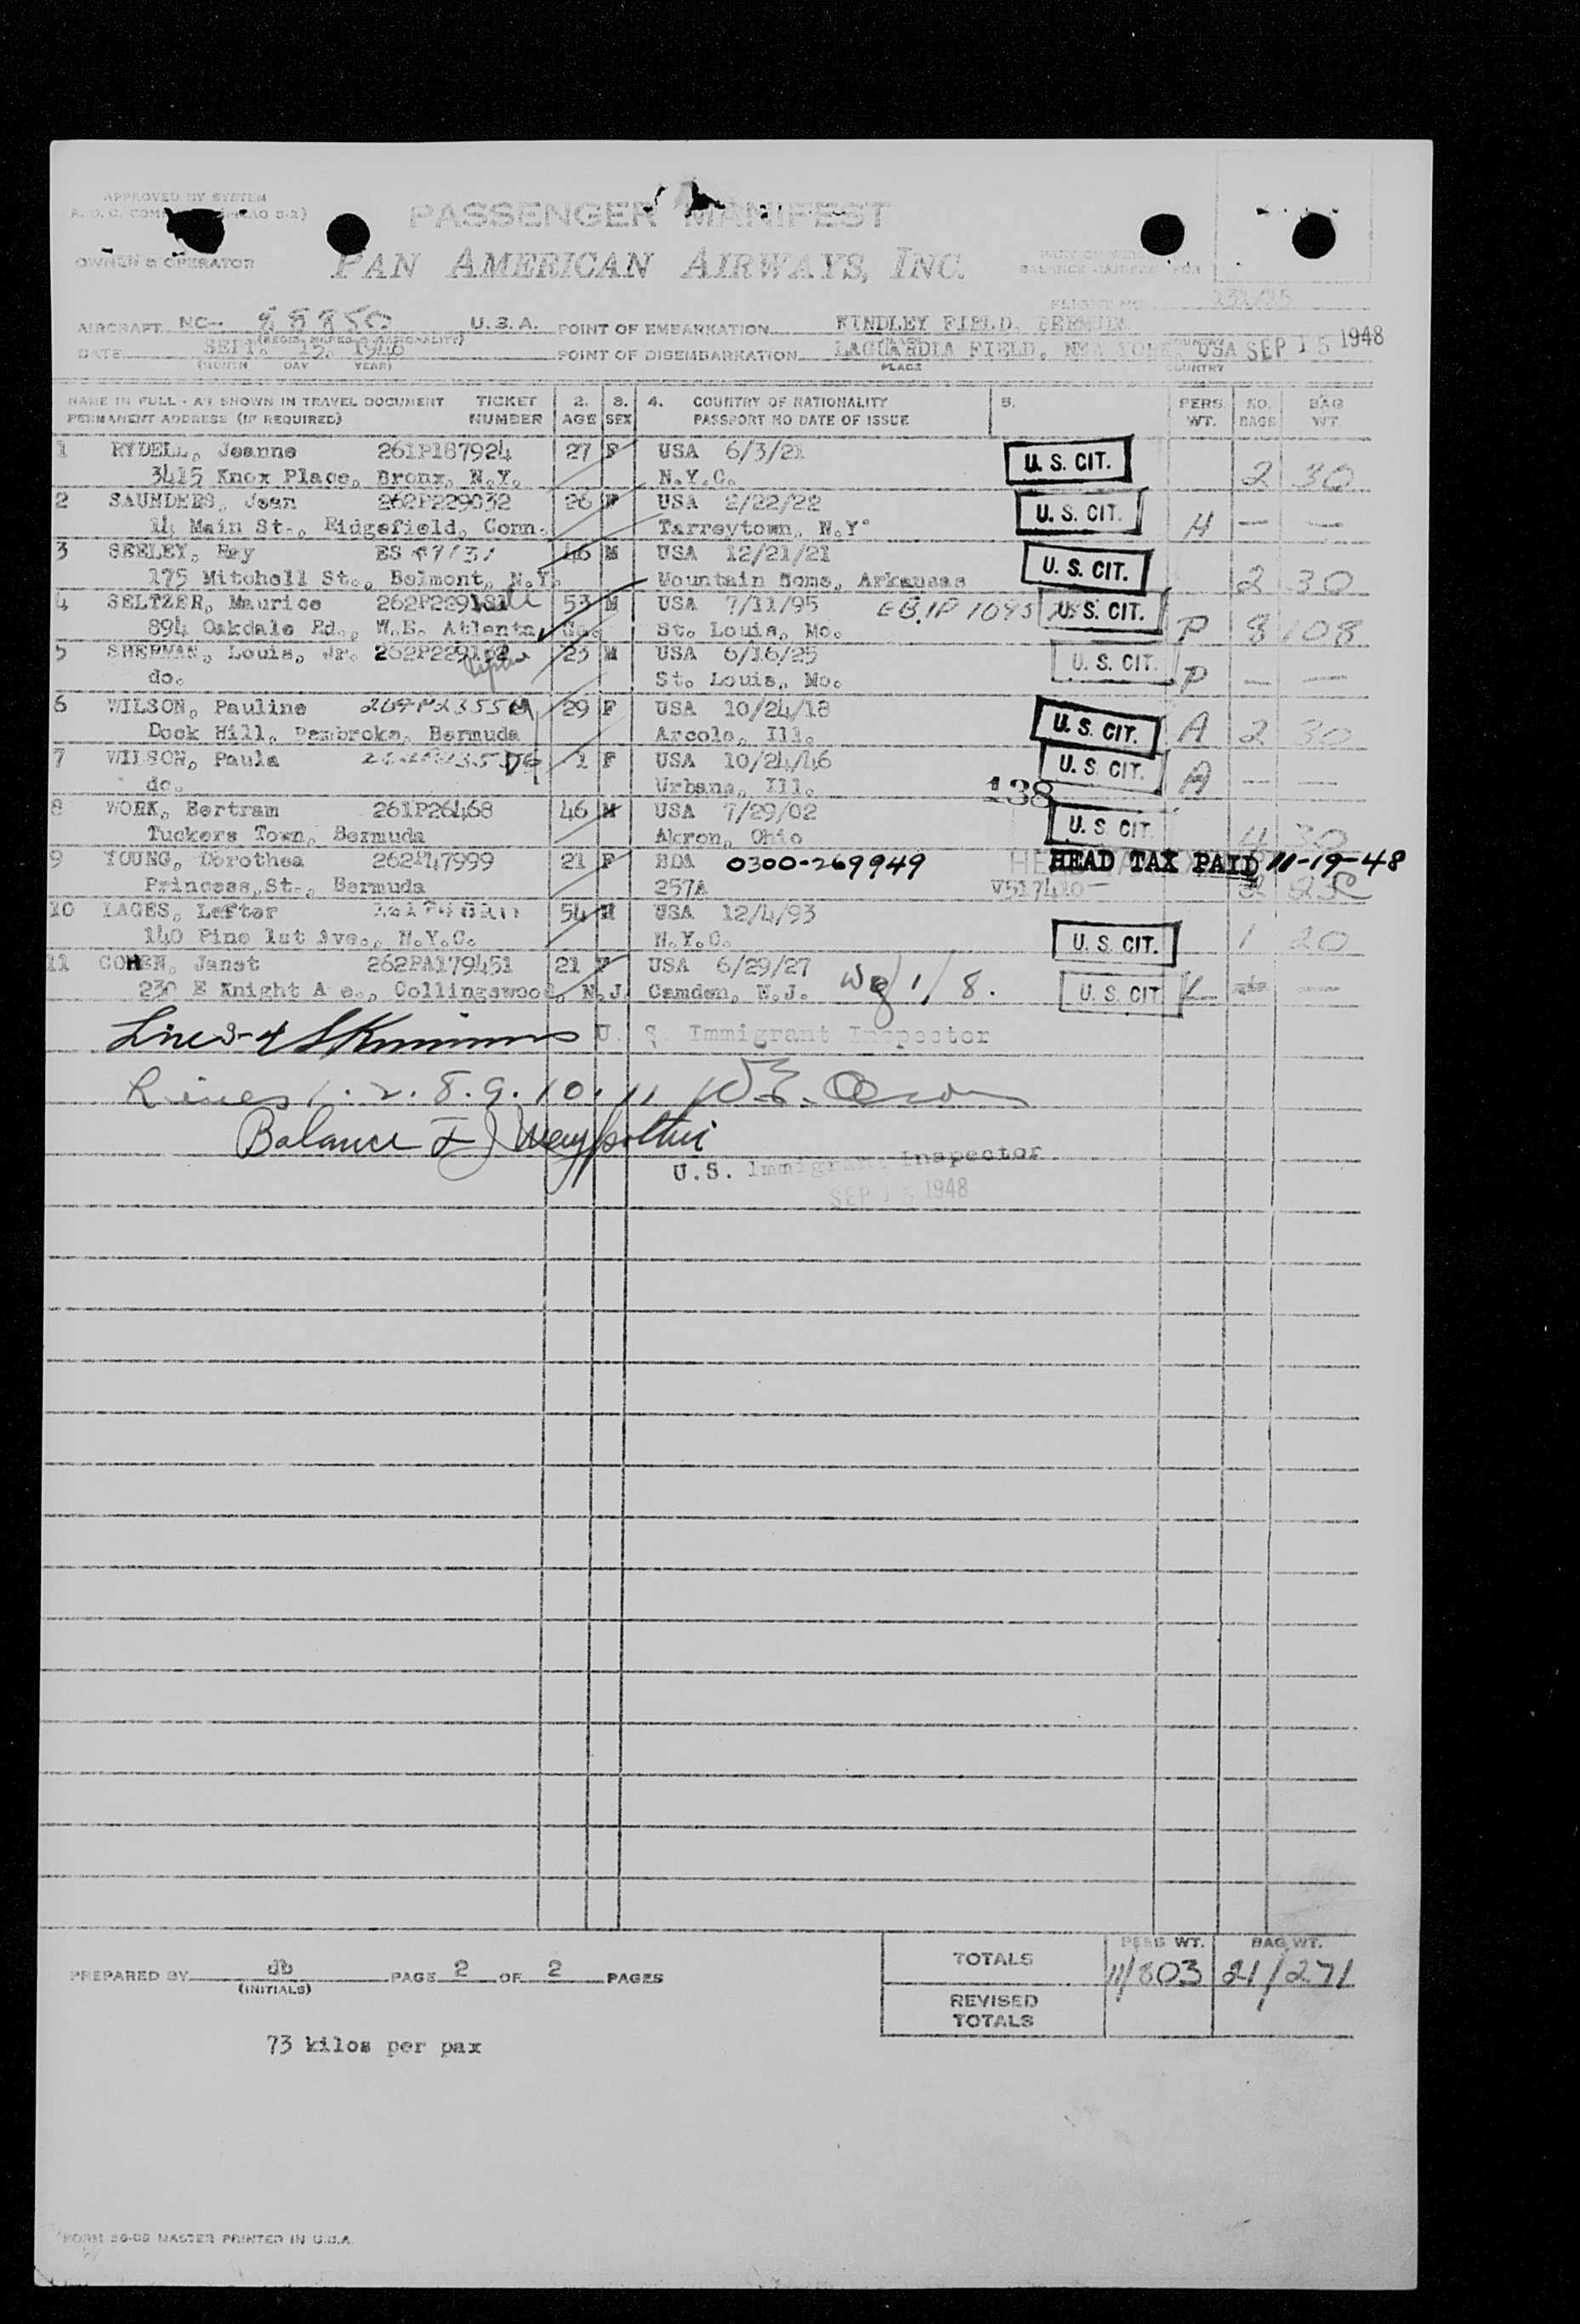 APPROVED BY SYSTEM
OWNER & OPERATOR
PASSENGER MANIFEST
PAN AMERICAN AIRWAYS, INC.
FLIGHT NO 131/15
AIRCRAFT NC- 88850 U.S.A. POINT OF EMBARKATION KINDLEY FIELD, BERMUDA
(REGIS. MARKS & NATIONALITY)
DATE SEPT. 15, 1948 POINT OF DISEMBARKATION LAGUARDIA FIELD, NEW YORK, USA SEP 15 1948
(MONTH DAY YEAR) PLACE COUNTRY
NAME IN FULL - AS SHOWN IN TRAVEL DOCUMENT TICKET 2. 3. 4. COUNTRY OF NATIONALITY 5. PERS. NO. BAG
PERMANENT ADDRESS (IF REQUIRED) NUMBER AGE SEX PASSPORT NO DATE OF ISSUE WT. BAGS WT.
1 RYDELL, Jeanne 261P187924 27 F USA 6/3/21 U. S. CIT.
3415 Knox Place, Bronx, N.Y. N.Y.C. 2 30
2 SAUNDERS, Jean 262P229032 26 F USA 2/22/22 U. S. CIT.
14 Main St., Ridgefield, Conn. Tarreytown, N.Y. H — —
3 SEELEY, Ray ES 46 M USA 12/21/21 U. S. CIT.
175 Mitchell St., Belmont, N.Y. Mountain Home, Arkansas 2 30
4 SELTZER, Maurice 53 M USA 7/11/95 U. S. CIT.
894 Oakdale Rd., W.E. Atlanta, Ga. St. Louis, Mo. P 8 108
5 SHERMAN, Louis, Jr. 23 M USA 6/16/25 U. S. CIT.
do. St. Louis, Mo. P — —
6 WILSON, Pauline 29 F USA 10/24/18 U. S. CIT.
Dock Hill, Pembroke, Bermuda Arcola, Ill. A 2 30
7 WILSON, Paula 1 F USA 10/24/46 U. S. CIT.
do. Urbana, Ill. 138 A — —
8 WORK, Bertram 261P26468 46 M USA 7/29/02 U. S. CIT.
Tuckers Town, Bermuda Akron, Ohio 4 30
9 YOUNG, Dorothea 21 F BDA 0300-269949 HEAD TAX PAID 11-19-48
Princess, St., Bermuda 257A V517420 2 23
10 LAGES, Lefter 54 M USA 12/4/93
140 Pine 1st Ave., N.Y.C. N.Y.C. U. S. CIT. 1 20
11 COHEN, Janet 262PA179451 21 F USA 6/29/27
230 E Knight A e., Collingswood, N.J. Camden, N.J. U. S. CIT
Line 3-4 U. S. Immigrant Inspector
Lines 1. 2. 8. 9. 10. 11
Balance
U.S. Immigrant Inspector
SEP 15 1948
TOTALS PERS WT. BAG WT.
11/803 21/271
PREPARED BY db PAGE 2 OF 2 PAGES
(INITIALS)
REVISED
TOTALS
73 kilos per pax
FORM 36-09 MASTER PRINTED IN U.S.A.